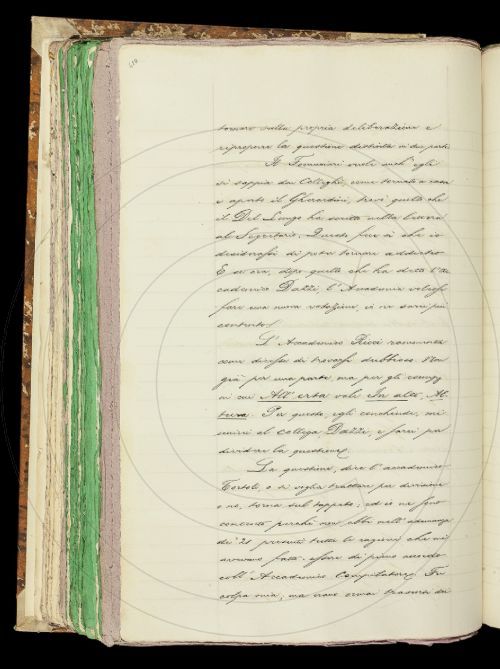 tornare sulla propria deliberazione e
riproporre la questione distinta in due parti.
Il Tommasini vuole anch' egli
si sappia dai Colleghi, come tornato a casa
e aperto il Gherardini, trovò quello che
il Del Lungo ha scritto nella lettera
al Segretario. Questo fece sì che io
desiderassi di poter tornare addietro.
E se ora, dopo quello che ha detto l'Ac
cademico Dazzi, l'Accademia volesse
fare una nuova votazione, io ne sarei più
contento.
L'Accademico Ricci rammenta
come dicesse di trovarsi dubbioso. Non
già per una parte, ma per gli esempj
in cui All'erta vale In alto, Al
tura. Per questo, egli conchiude, mi
unirei al collega Dazzi, e sarei per
dividere la questione.
La questione, dice l'accademico
Tortoli, o si voglia trattare per divisione
o no, torna sul tappeto; ed io ne sono
contento perchè non ebbi nell' adunanza
de' 21 presenti tutte le ragioni che mi
avevano fatto essere di pieno accordo
coll' Accademico Compilatore. Fu
colpa mia, ma erano ormai trascorsi dei